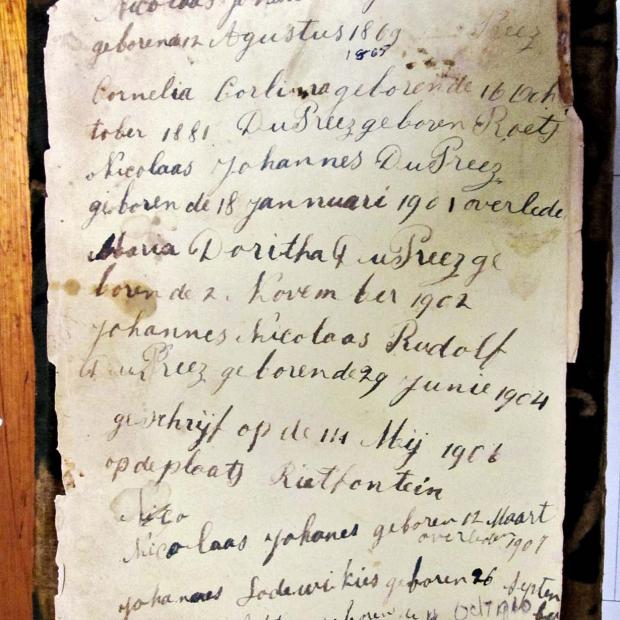 Nicolaas Johan
geboren de 12 Agustus 1869 Preez
1865
Cornelia Corlina geboren de 16 Och
tober 1881 Du Preez geboren Roets
Nicolaas Johannes Du Preez
geboren de 18 Jannuari 1901 overlede
Maria Doritha Du Preez ge
boren de 2. November 1902
Johannes Nicolaas Rudolf
Du Preez geboren de 29 Junie 1904
geschrijf op de 14 Meij 1906
op de plaats Rietfontein
Nico
Nicolaas Johanes geboren 12 Maart
overleden 1907
Johannes Lodewikies geboren 26 Septem
ber
geboren